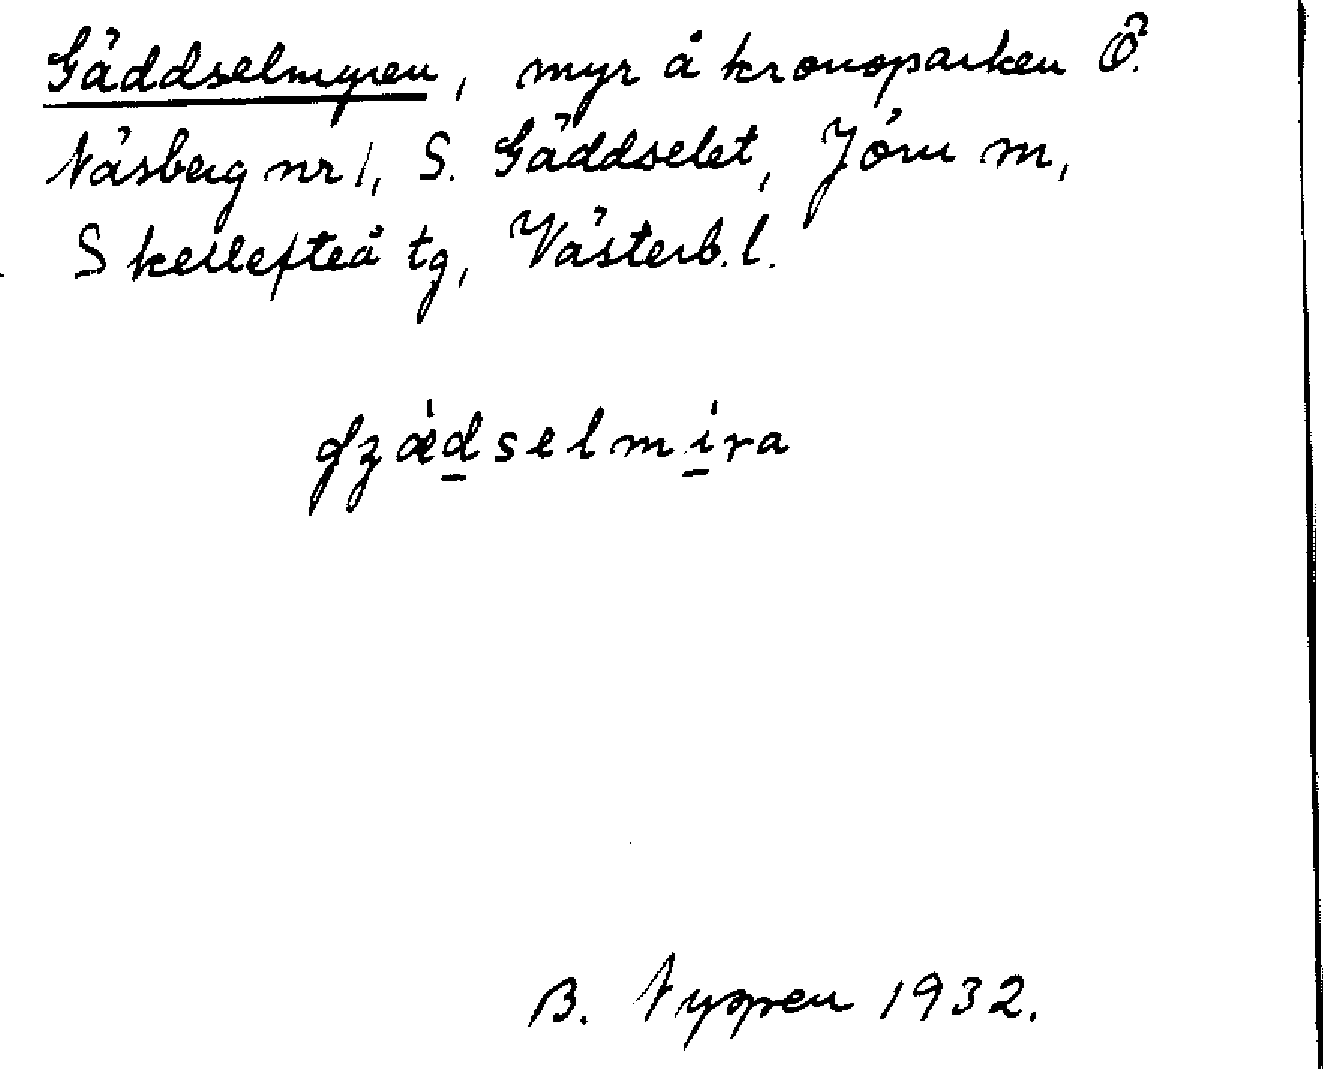 Gäddselmyren, myr å kronoparken Ö.
Näsberg nr 1, S. Gäddselet, Jörn m,
Skellefteå tg, Västerb. l.
B. Nyppen 1932.